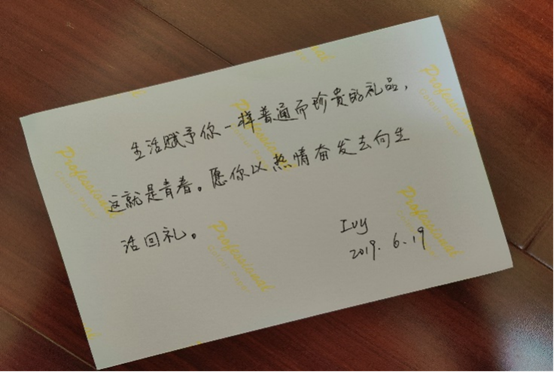 生活赋予你一样普通而珍贵的礼品，
这就是青春。愿你以热情奋发去向生
活回礼。
Ivy
2019. 6. 19